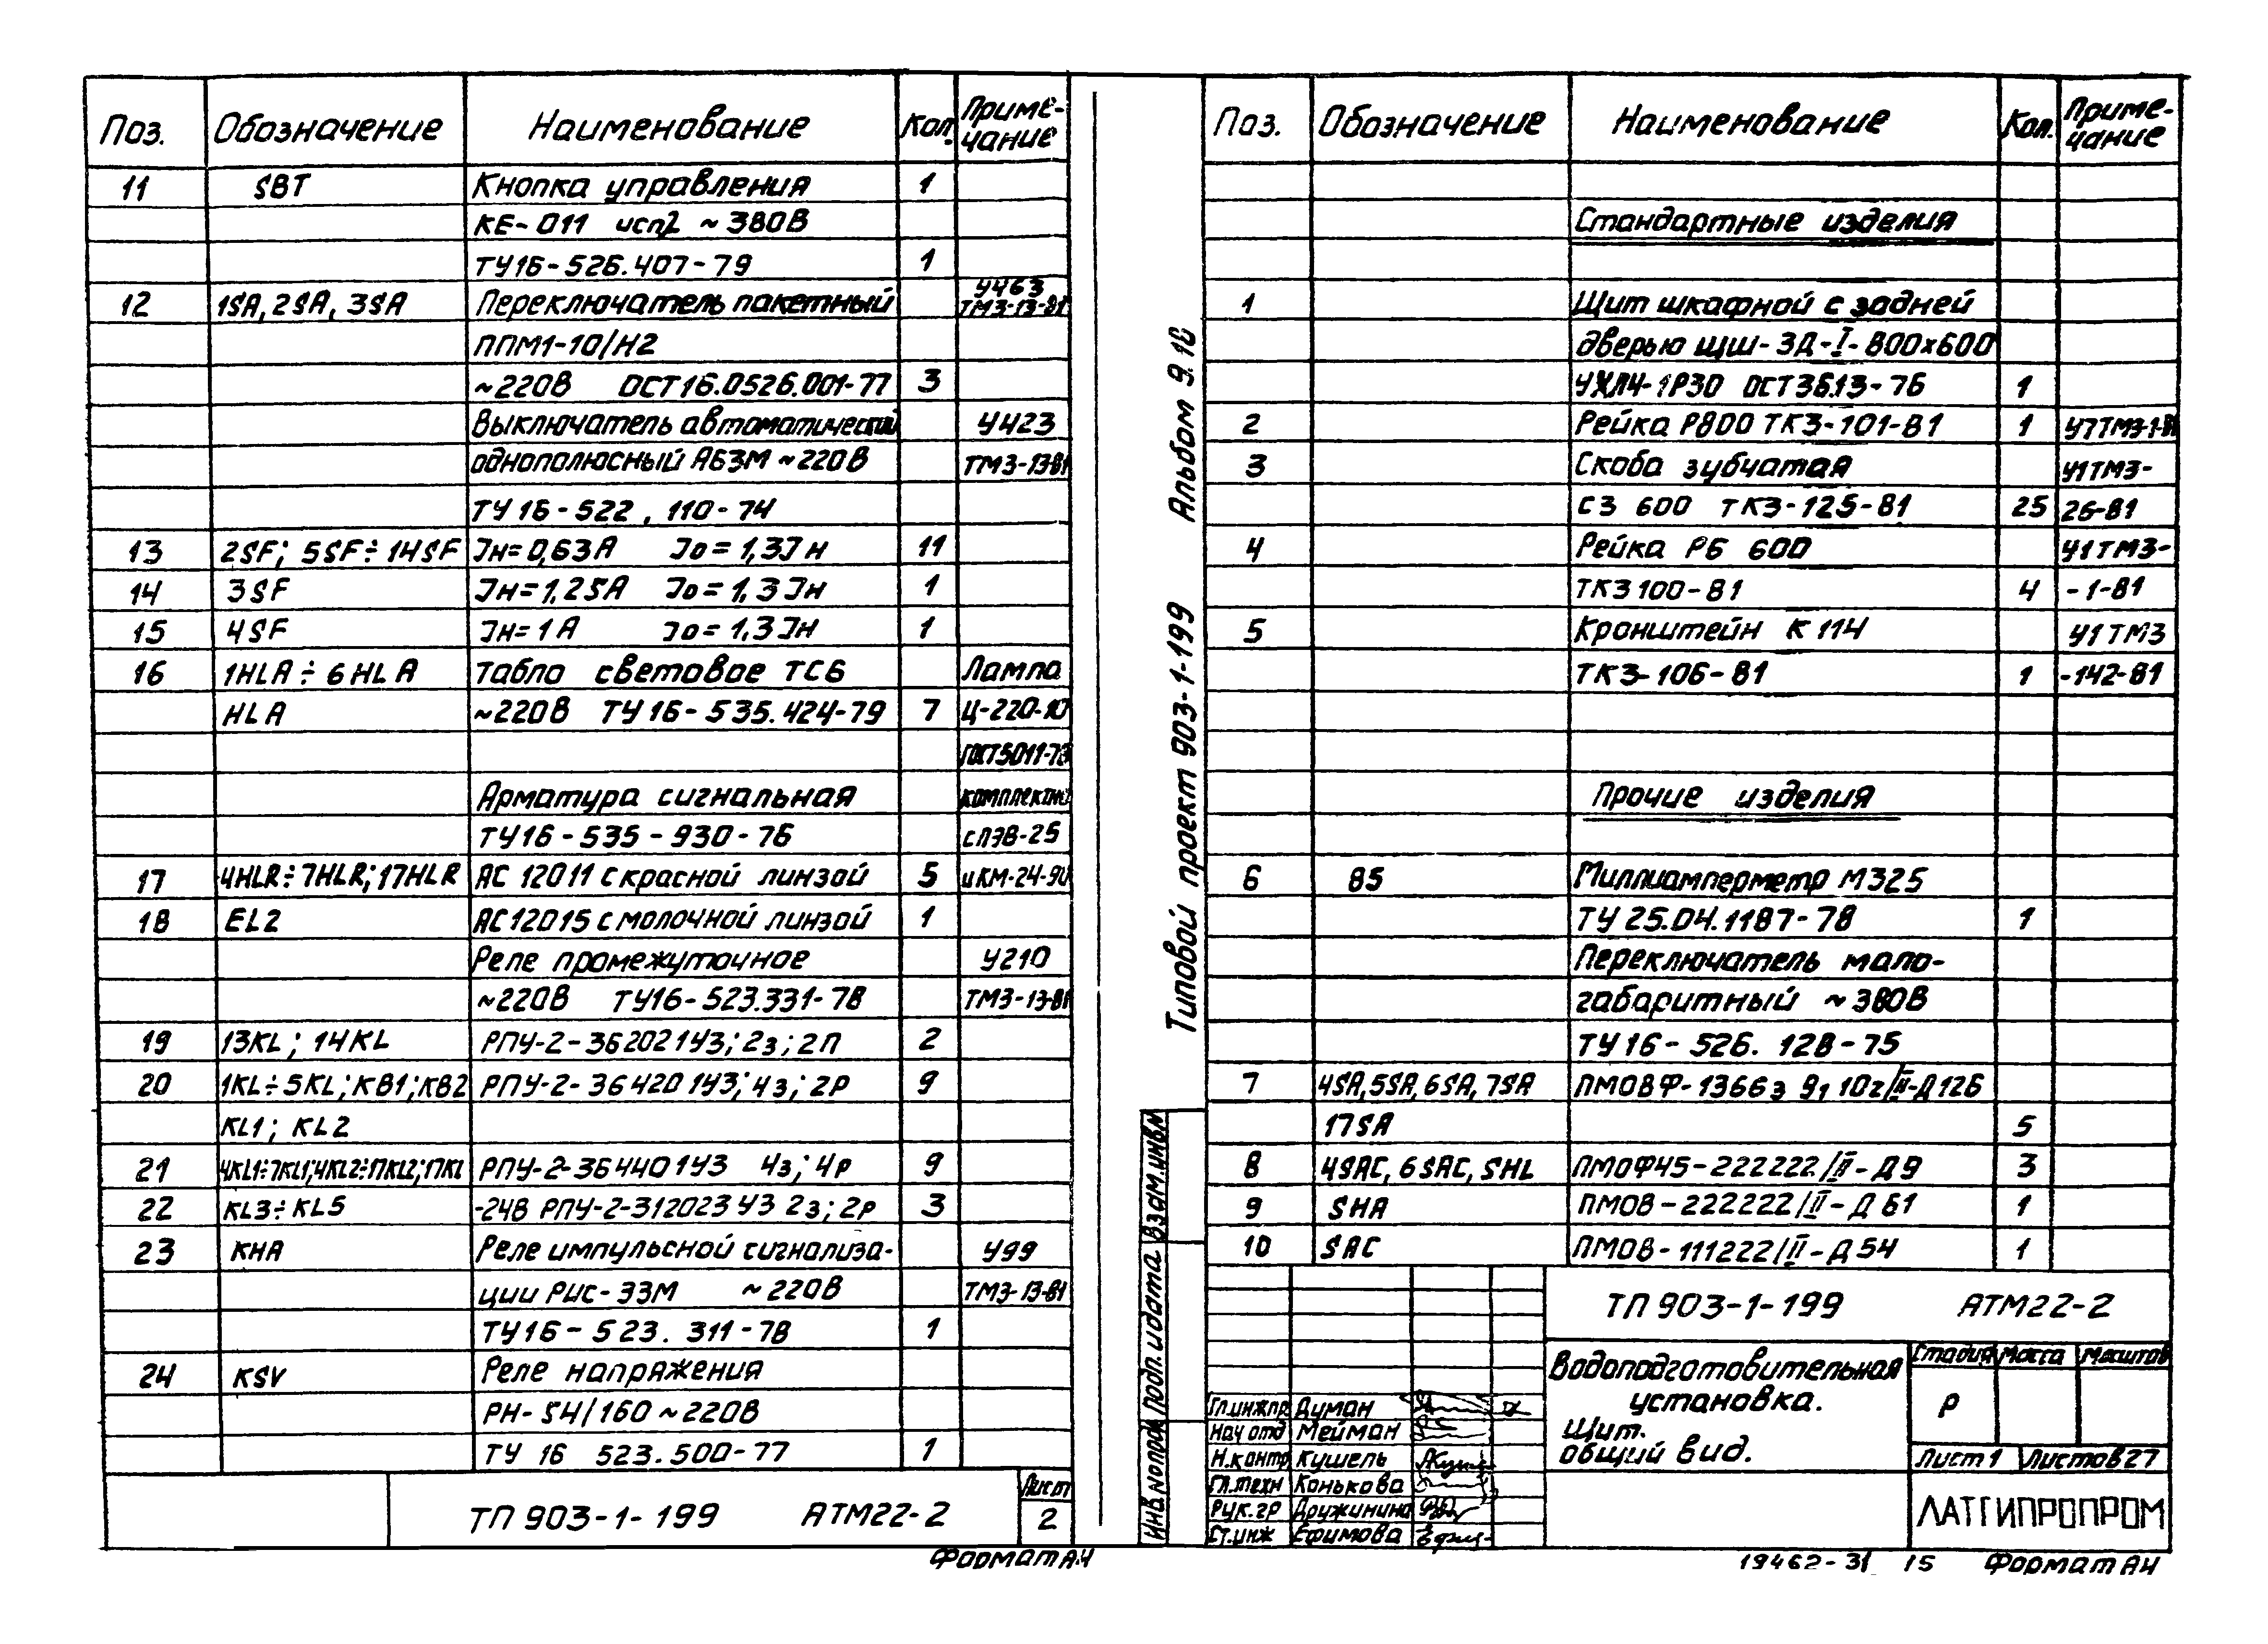 Поз. Обозначение Наименование Кол. Приме-
чание
11 SBT Кнопка управления 1
КЕ-011 исп2 ~380В
ТУ16-526.407-79 1
12 1SA, 2SA, 3SA Переключатель пакетный У463
ТМ3-13-81
ППМ1-10/Н2
~220В ОСТ16.0526.001-77 3
Выключатель автоматический У423
однополюсный А63М ~220В ТМ3-13-81
ТУ 16-522.110-74
13 2SF; 5SF÷14SF Jн=0,63А Jо=1,3Jн 11
14 3SF Jн=1,25А Jо=1,3Jн 1
15 4SF Jн=1А Jо=1,3Jн 1
16 1HLA÷6HLA Табло световое ТСБ Лампа
HLA ~220В ТУ16-535.424-79 7 Ц-220-10
ГОСТ5011-73
Арматура сигнальная комплектно
ТУ16-535-930-76 с ПЭВ-25
17 4HLR÷7HLR; 17HLR АС 12011 с красной линзой 5 и КМ-24-90
18 EL2 АС12015 с молочной линзой 1
Реле промежуточное У210
~220В ТУ16-523.331-78 ТМ3-13-81
19 13KL; 14KL РПУ-2-362021У3; 2з; 2П 2
20 1KL÷5KL; KB1; KB2 РПУ-2-364201У3; 4з; 2Р 9
KL1; KL2
21 4KL1÷7KL1; 4KL2÷17KL2; 17KL РПУ-2-364401У3 4з; 4р 9
22 KL3÷KL5 -24В РПУ-2-312023У3 2з; 2р 3
23 KHA Реле импульсной сигнализа- У99
ции РИС-33М ~220В ТМ3-13-81
ТУ16-523.311-78 1
24 KSV Реле напряжения
РН-54/160 ~220В
ТУ 16 523.500-77 1
ТП 903-1-199 АТМ22-2 Лист
2
Формат А4
Типовой проект 903-1-199 Альбом 9.10
Поз. Обозначение Наименование Кол. Приме-
чание
Стандартные изделия
1 Щит шкафной с задней
дверью ЩШ-ЗД-I-800х600
УХЛ4-1Р30 ОСТ36.13-76 1
2 Рейка Р800 ТК3-101-81 1 У7ТМ3-1-81
3 Скоба зубчатая У1ТМ3-
С3 600 ТК3-125-81 25 26-81
4 Рейка РБ 600 У1ТМ3-
ТК3 100-81 4 -1-81
5 Кронштейн К 114 У1ТМ3
ТК3-106-81 1 -142-81
Прочие изделия
6 85 Миллиамперметр М325
ТУ 25.04.1187-78 1
Переключатель мало-
габаритный ~380В
ТУ16-526.128-75
7 4SA, 5SA, 6SA, 7SA ПМОВФ-1366з 9, 10г/II-Д126
17SA 5
8 4SAC, 6SAC, SHL ПМОФ45-222222/II-Д9 3
9 SHA ПМОВ-222222/II-Д61 1
10 SAC ПМОВ-111222/II-Д54 1
ТП 903-1-199 АТМ22-2
Водоподготовительная
установка.
Щит.
общий вид.
Стадия Масса Масштаб
Р
Лист 1 Листов 27
ЛАТГИПРОПРОМ
Гл.инж.пр Думан
Нач отд Мейман
Н.контр Кушель
Гл.техн Конькова
Рук.гр Дружинина
Ст.инж Ефимова
Инв.№подл Подп. и дата Взам.инв№
19462-31 15 Формат А4